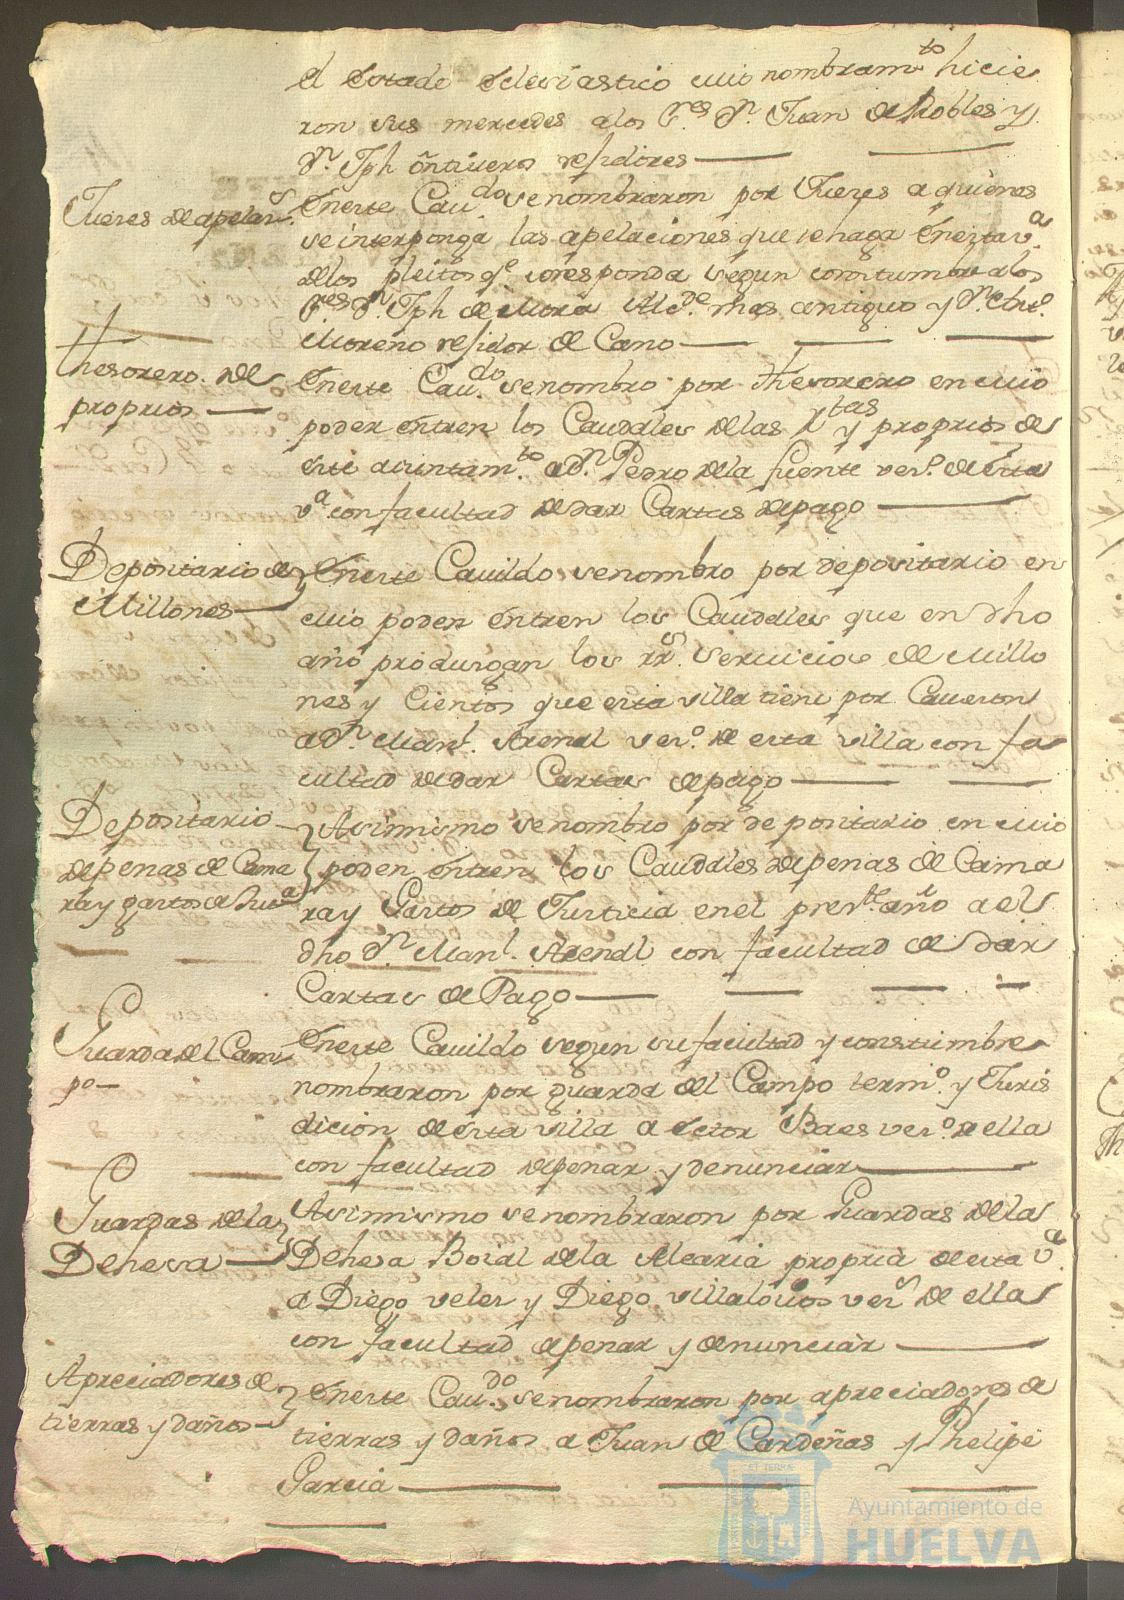 el estado eclesiastico cuio nombramto hicie
ron sus mercedes a los Sres Dn Juan de Robles y
Dn Jph Ontiveros rejidores
Jueses de apelasns.
En este Caudo se nombraron por Jueses a quienes
se interponga las apelaciones que se haga en esta va
de los pleitos qe coresponda segun constumbre a los
Sres Dn Jph de Mora Alcde mas antiguo y Dn
Moreno rejidor de Cano
thesorero de
proprios
En este Caudo se nombro por thesorero en cuio
poder entren los Caudales de las Rtas y proprios de
este aiuntamto a Dn Pedro de la fuente veso de esta
va con facultad de dar Cartas de pago
Depositario de
Millones
En este Cauildo se nombro por depositario en
cuio poder entren los Caudales que en dho
año produsgan los rrs servicios de millo
nes y cientos que esta villa tiene por Caueson
a Dn Manl. Arenal veso de esta villa con fa
cultad de dar Cartas de pago
Depositario
de penas de Cama
ra y gastos de Justa
Asimismo se nombro por depositario en cuio
poder entren los Caudales de penas de Cama
ra y Gastos de Justicia en el preste año a el
dho Dn Manl. Arenal con facultad de dar
Cartas de Pago
Guarda del Cam
po
En este Cauildo segun su facultad y constumbre
nombraron por guarda del Campo termo y Juris
dicion de esta villa a Setor Baes veso de ella
con facultad de penar y denunciar
Guardas de la
Dehesa
Asimismo se nombraron por Guardas de la
Dehesa Boial de la Alcaria propria de esta va
a Diego veles y Diego villalouos vess de ella
con facultad de penar y denunciar
Apreciadores de
tierras y daños
En este Caudo se nombraron por apreciadores de
tierras y daños a Juan de Cardeñas y Phelipe
Garcia
Ayuntamiento de
HUELVA